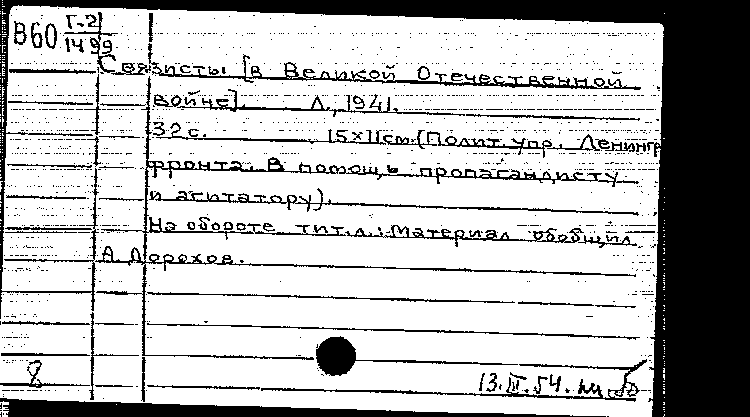 В60 Г-2/1499
Связисты [в Великой Отечественной
войне]. Л., 1941.
32 с. 15×11см. (Полит. упр. Ленингр
фронта. В помощь пропагандисту
и агитатору).
На обороте тит. л.: Материал обобщил
А. Дорохов.
8 13.III.54.